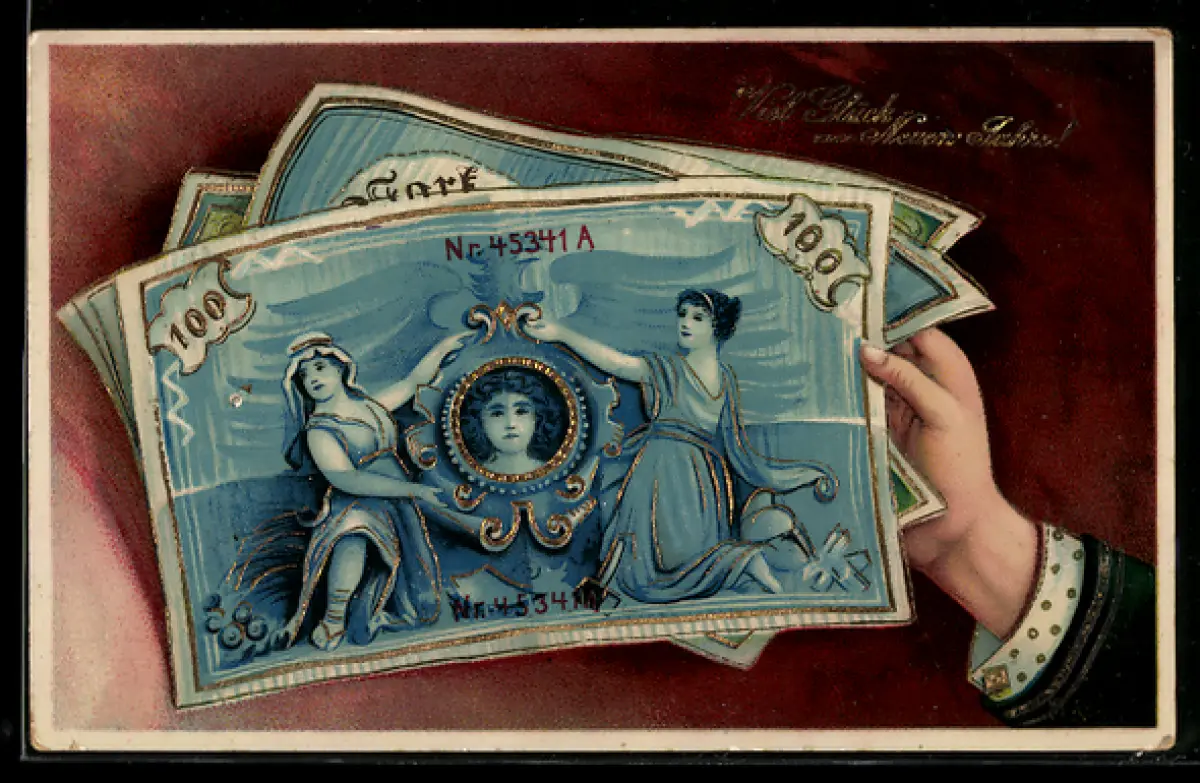 Viel Glück
zum Neuen Jahre!
Mark
Nr. 45341 A
100
100
Nr. 45341